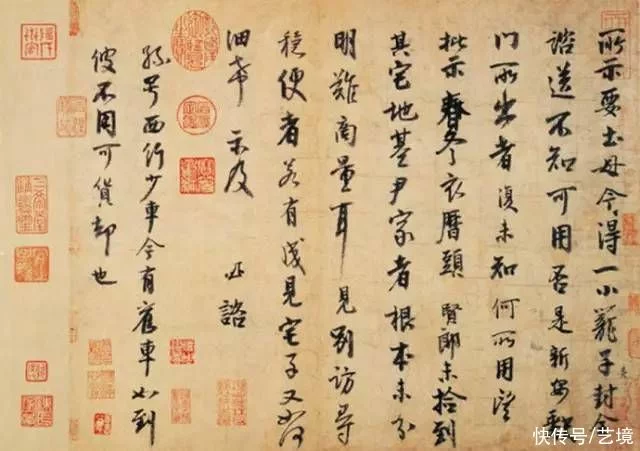 所示要土母今得一小籠子封全
諮送不知可用否是新安
門所出者復未知何所用望
批示春冬衣曆頭賢郎未拾到
其宅地基尹家者根本未分
明難商量耳見別訪尋
穩便者若有成見宅子又如何
細希示及諮
孫号西行少車今有舊車如到
彼不用可貨却也
快传号/艺境